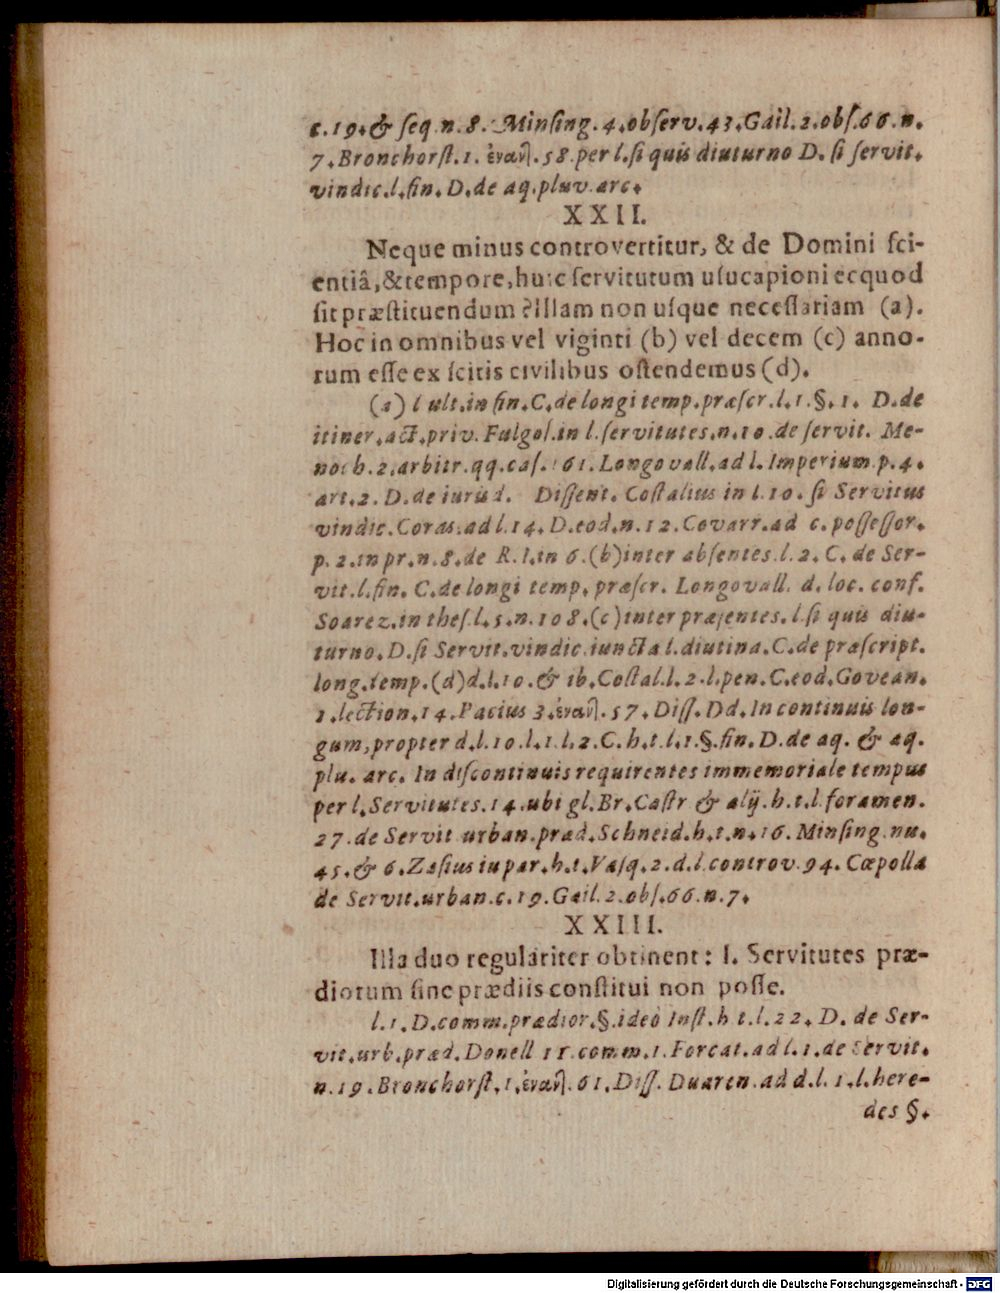 c.19.& ſeq.n.8. Minſing.4.obſerv.43.Gail.2.obſ.66.n.
7.Bronchorſt.1. ἐναντ.58.per l.ſi quis diuturno D. ſi ſervit.
vindic.l.fin.D.de aq.pluv.arc.
XXII.
Neque minus controvertitur, & de Domini ſci-
entiâ,& tempore,huic ſervitutum uſucapioni ecquod
ſit præſtituendum? Illam non uſque neceſſariam (a).
Hoc in omnibus vel viginti (b) vel decem (c) anno-
rum eſſe ex ſcitis civilibus oſtendemus (d).
(a) l ult.in fin.C.de longi temp.præſcr.l.1.§.1. D.de
itiner.act.priv.Fulgoſ.in l.ſervitutes.n.10.de ſervit. Me-
noch.2.arbitr.qq.caſ.161.Longovall.ad l.Imperium.p.4.
art.2. D.de iurisd. Diſſent. Coſtalius in l.10. ſi Servitus
vindic.Coras.ad l.14.D.eod.n.12.Covarr.ad c.poſſeſſor.
p.2.in pr.n.8.de R.I.in 6.(b)inter abſentes.l.2.C. de Ser-
vit.l.fin.C.de longi temp.præſcr. Longovall. d.loc. conf.
Soarez.in theſ.l.5.n.108.(c)inter præſentes.l.ſi quis diu-
turno.D.ſi Servit.vindic.iuncta l.diutina.C.de præſcript.
long.temp.(d)d.l.10.& ib.Coſtal.l.2.l.pen.C.eod.Govean.
1.lection.14.Pacius 3.ἐναντ.57.Diſſ.Dd.In continuis lon-
gum,propter d.l.10.l.1.l.2.C.h.t.l.1.§.fin.D.de aq. & aq.
plu. arc. In diſcontinuis requirentes immemoriale tempus
per l.Servitutes.14.ubi gl.Br.Caſtr & alij.h.t.l.foramen.
27.de Servit urban.præd.Schneid.h.t.n.16.Minſing.nu.
45.& 6.Zaſius in par.h.t.Vaſq.2.d.l.controv.94.Cæpolla
de Servit.urban.c.19.Gail.2.obſ.66.n.7.
XXIII.
Illa duo regulariter obtinent: I. Servitutes præ-
diorum ſine prædiis conſtitui non poſſe.
l.1.D.comm.prædior.§.ideò Inſt.h t.l.22. D. de Ser-
vit.urb.præd.Donell 11.comm.1.Forcat.ad l.1.de Servit.
n.19.Bronchorſt.1.ἐναντ.61.Diſſ. Duaren.ad d.l. 1.l.here-
des §.
Digitalisierung gefördert durch die Deutsche Forschungsgemeinschaft - DFG